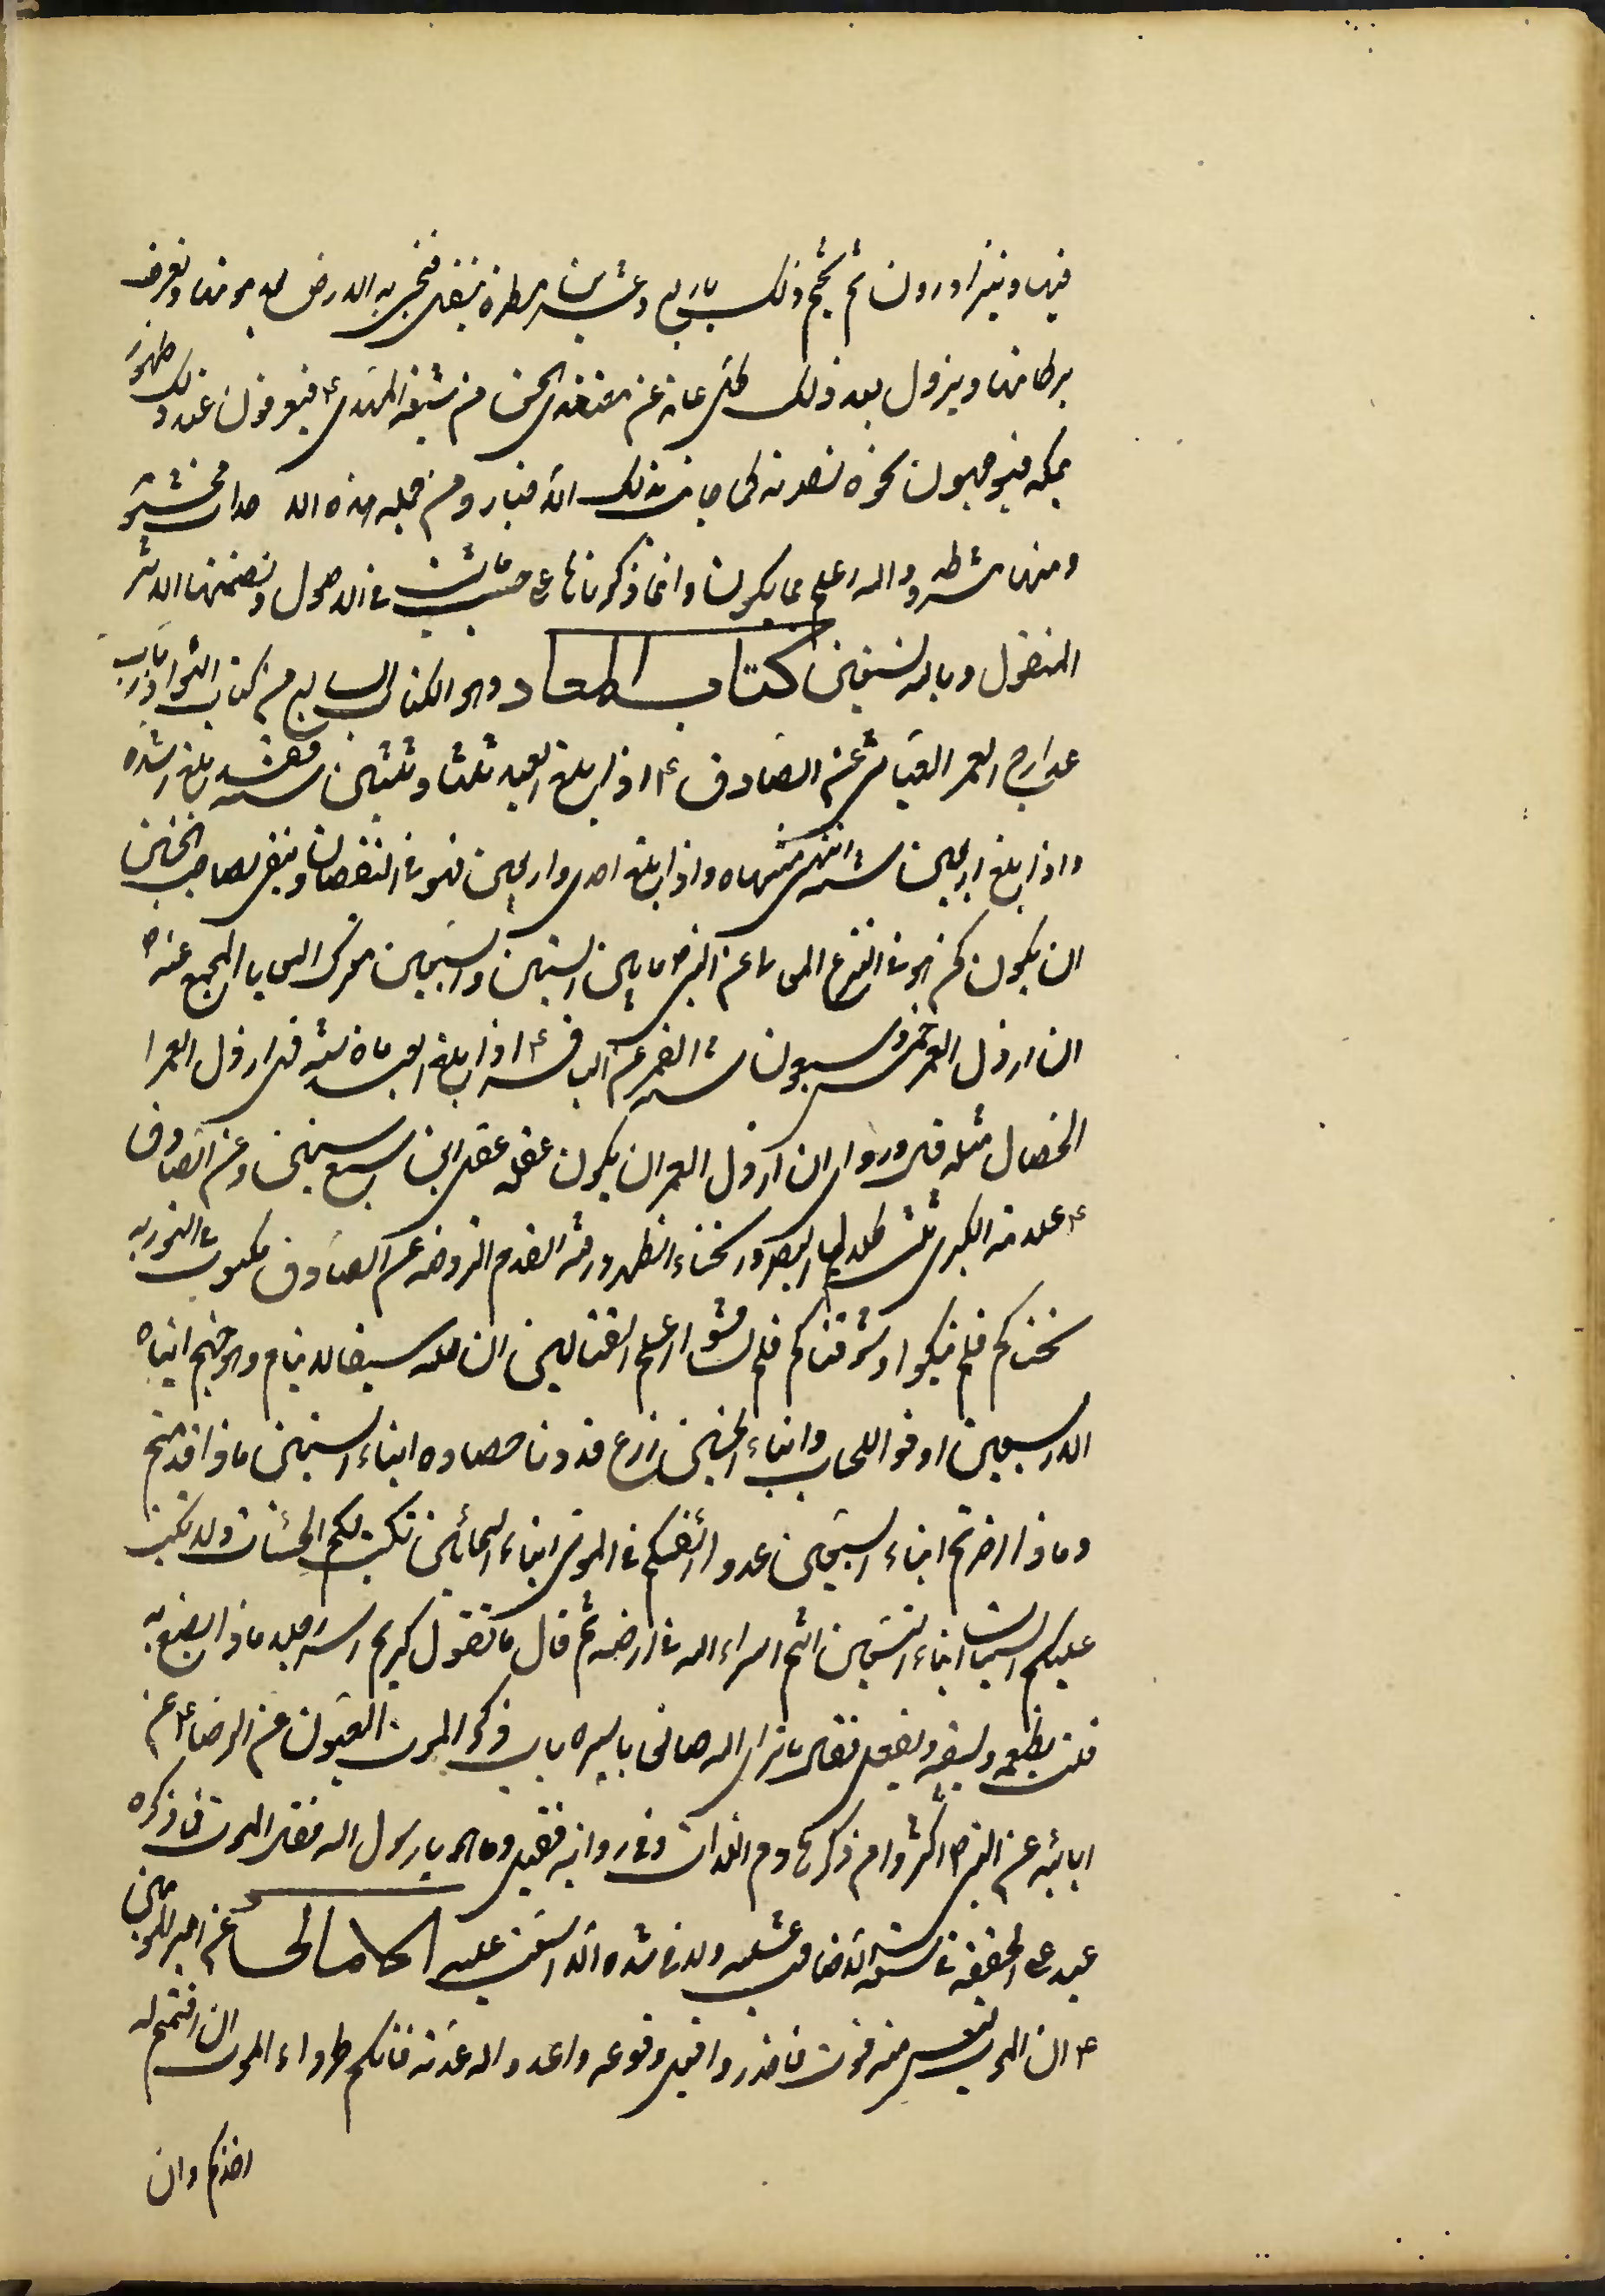 فيها ويتزاورون ثم يختم ذلك باربع وعشرين مطرة يتصل فتحيى به الارض بعد موتها وتعرف
بركاتها ويزول بعد ذلك كل عاهة عن معتقدى الحق من شيعة المهدى ع فيعرفون عند ذلك ظهوره
بمكة فيتوجهون نحوه لنصرته كما جاءت بذلك الاخبار ومن جملة هذه الاحداث محتومة
ومنها مشروطه والله اعلم بما يكون وانما ذكرناها على حسب ما ثبت فى الاصول وتضمنها الاثر
المنقول وبالله نستعين كتاب المعاد وهو الكتاب السابع من كتاب النوادر باب
مدارج العمر العياشى عن الصادق ع اذا بلغ العبد ثلثا وثلثين سنة فقد بلغ اشده
واذا بلغ اربعين سنة انتهى منتهاه واذا بلغ احدى واربعين فهو فى النقصان وينبغى لصاحب الخمسين
ان يكون كمن هو فى النزع المعانى عن النبى ص ما بين الستين والسبعين معترك المنايا المجمع عنه ص
ان ارذل العمر خمس وسبعون سنة القمى عن الباقر ع اذا بلغ العبد ماة سنة فذلك ارذل العمر
الخصال مثله قال وروى ان ارذل العمر ان يكون عقله عقل ابن سبع سنين وعن الصادق
ع علامة الكبر ثلث كلال البصر وانحناء الظهر ورقة القدم الروضه عن الصادق ع مكتوب فى التورية
نحنا لكم فلم تبكوا وشوقناكم فلم تشتاقوا اعلم القتالين ان لله سيفا لا ينام وهو جهنم ابناء
الاربعين اوفوا للحساب وابناء الخمسين زرع قد دنا حصاده ابناء الستين ماذا قدمتم
وماذا اخرتم ابناء السبعين عدوا انفسكم فى الموتى ابناء الثمانين تكتب لكم الحسنات ولا تكتب
عليكم السيئات ابناء التسعين انتم اسراء الله فى ارضه ثم قال ما تقول كريم اسر رجلا ماذا يصنع به
قلت يطعمه ويسقيه ويفعل فقال ما ترى الله صانعا باسيره باب ذكر الموت العيون عن الرضا ع عن
ابائه عن النبى ص اكثروا من ذكر هادم اللذات وفى رواية فقيل وما هو يا رسول الله فقال الموت فما ذكره
عبد على الحقيقة فى سعة الا ضاقت عليه ولا فى شدة الا اتسعت عليه المجالس عن امير المؤمنين
ع ان الموت ليس منه فوت فاحذروا قبل وقوعه واعدوا له عدته فانكم طرداء الموت ان اقمتم له
اخذكم وان